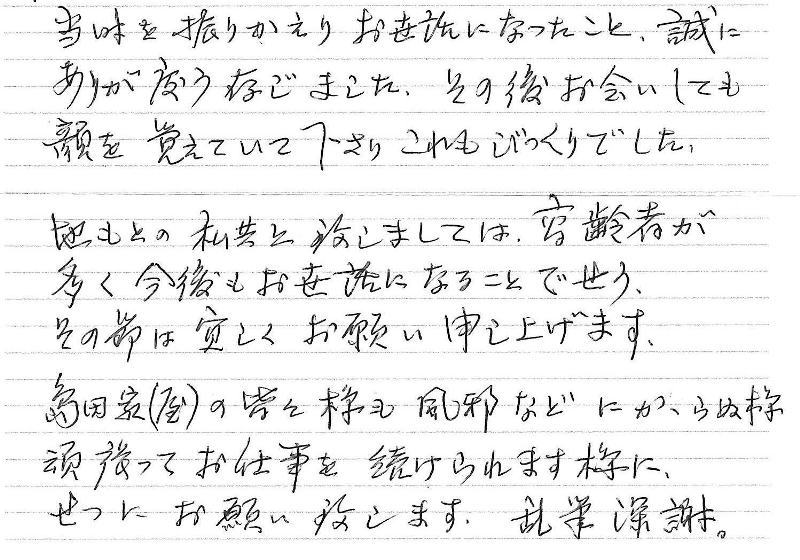 当時を振りかえりお世話になったこと、誠に
ありが度う存じました。その後お会いしても
顔を覚えていて下さりこれもびっくりでした。
地もとの私共と致しましては、高齢者が
多く今後もお世話になることでせう、
その節は宜しくお願い申し上げます。
島田家(屋)の皆々様も風邪などにかゝらぬ様
頑張ってお仕事を続けられます様に、
せつにお願い致します。乱筆深謝。